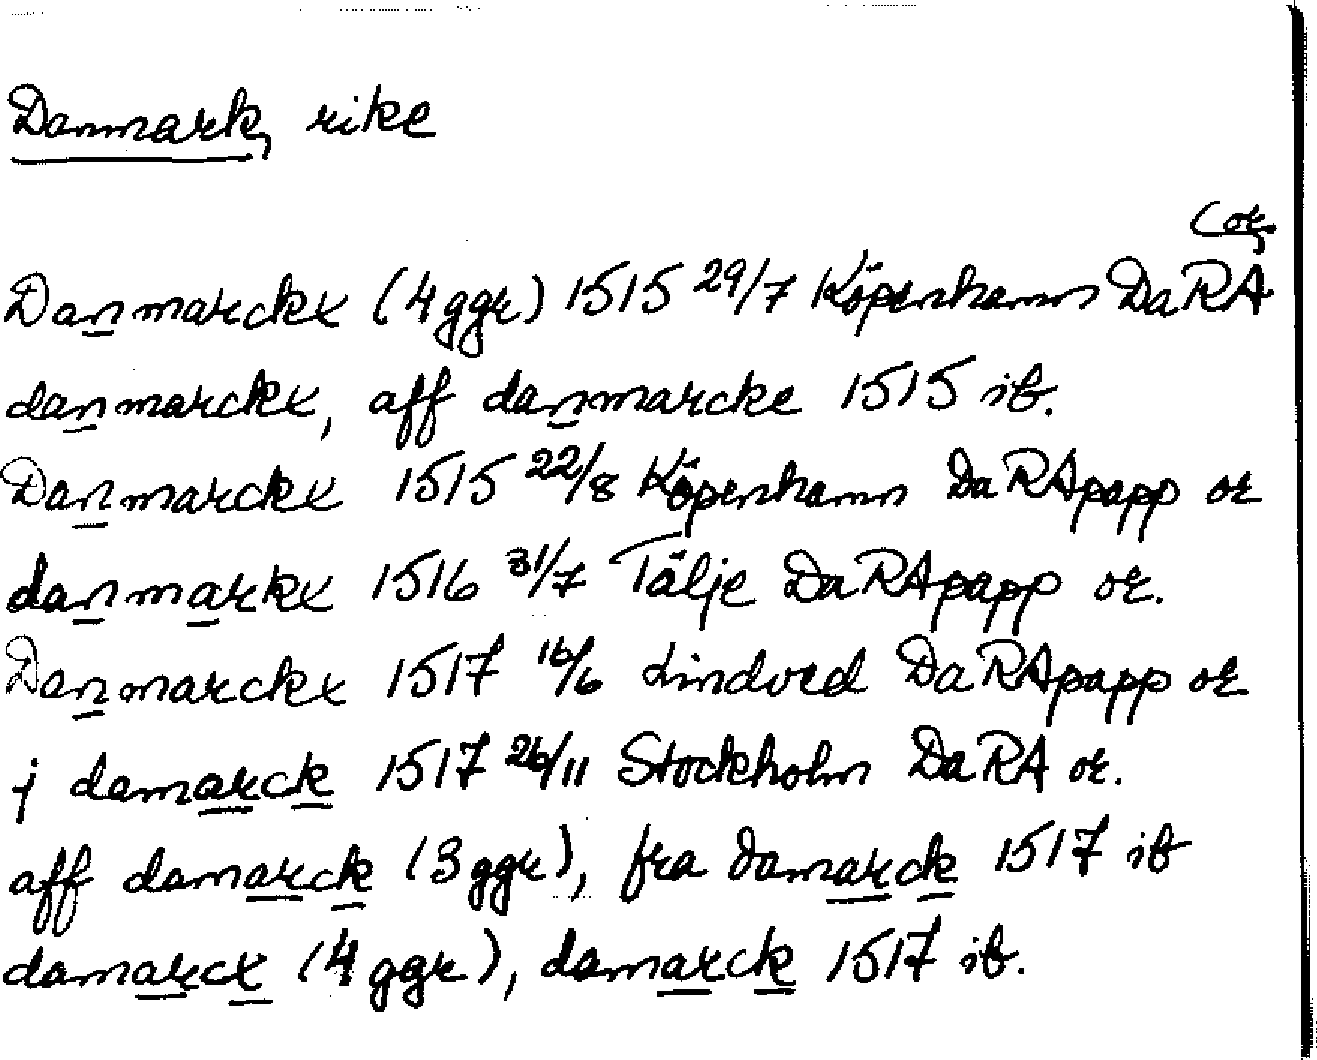 Danmark, rike
(or.
Danmarckx (4 ggr) 1515 29/7 Köpenhamn DaRA
danmarckx, aff danmarcke 1515 ib.
Danmarckx 1515 22/8 Köpenhamn DaRApapp or
danmarkx 1516 31/7 Tälje DaRApapp or.
Danmarckx 1517 16/6 Lindved DaRApapp or
j damarck 1517 26/11 Stockholm DaRA or.
aff damarck (3 ggr), fra damarck 1517 ib
damarcx (4 ggr), damarck 1517 ib.